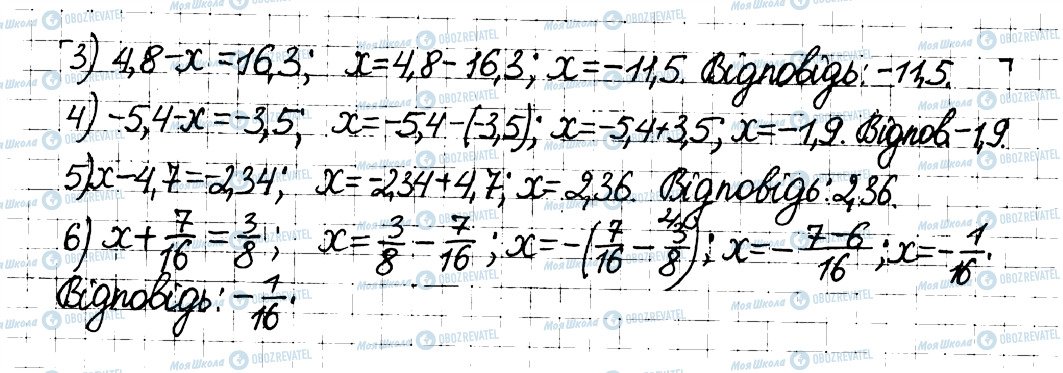 3) 4,8-x=16,3; x=4,8-16,3; x=-11,5. Відповідь: -11,5.
4) -5,4-x=-3,5; x=-5,4-(-3,5); x=-5,4+3,5; x=-1,9. Відпов. -1,9.
5) x-4,7=-2,34; x=-2,34+4,7; x=2,36. Відповідь: 2,36.
6) x+7/16=3/8; x=3/8-7/16; x=-(7/16-3/8); x=-(7-6)/16; x=-1/16.
Відповідь: -1/16.